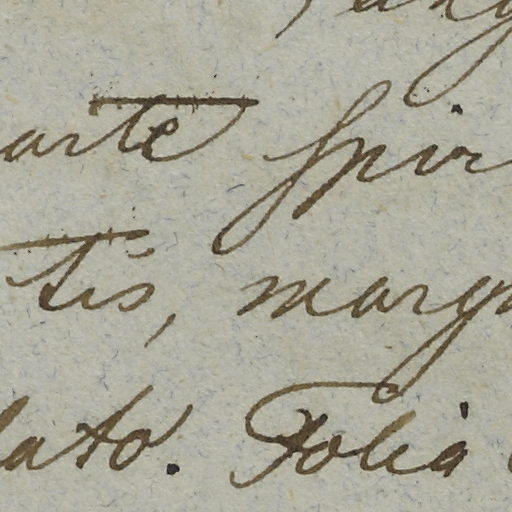 arte spir
tis, marg
lato. Folia